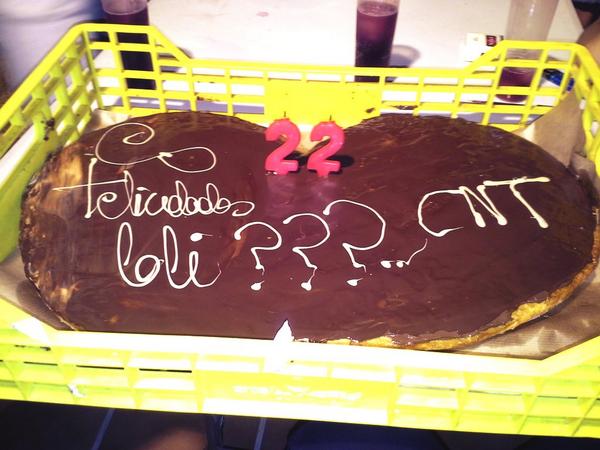 22
felicidades
loli ???... CNT